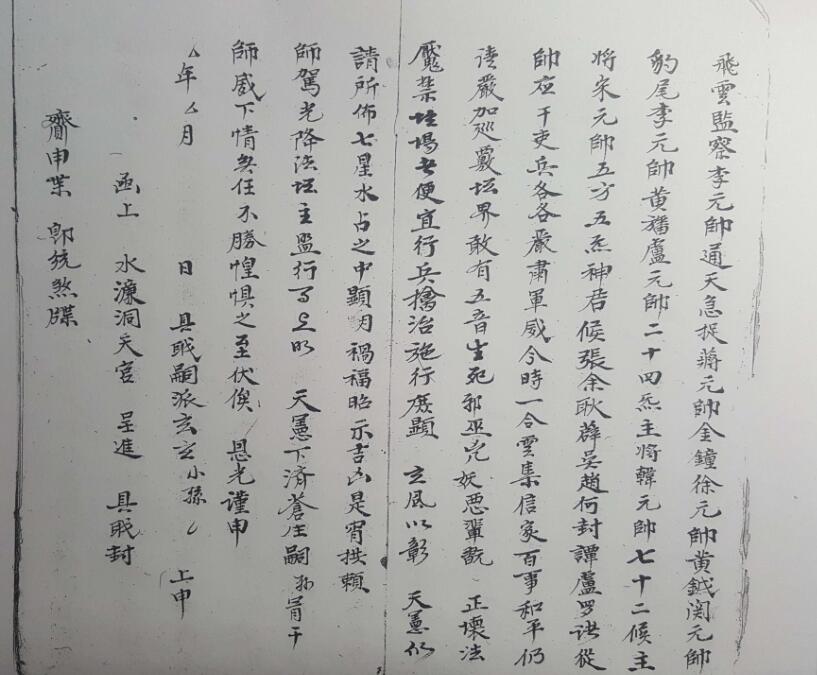 飛雲監察李元帥通天急捉蔣元帥金鐘徐元帥黃鉞関元帥
豹尾李元帥黃旛盧元帥二十四炁主將韓元帥七十二候主
將朱元帥五方五炁神君候張余耿薛吳趙何封譚盧罗諸從
帥应干吏兵各各嚴肅軍威令時一合雲集信家百事和平仍
請嚴加巡覈坛界敢有五音生死邪巫 妖惡輩 正壞法
魘禁坛場者便宜行兵擒治施行庶顯 玄風以彰 天憲仍
請所佈七星水占之中顯明禍福昭示吉凶是宵拱頼
師駕光降法坛主盟行 昭 天憲下済蒼生嗣 干
師威下情無任不勝惶惧之至伏俟 恩光谨申
厶年厶月 日 具職嗣派玄 小孫厶 上申
函上 水濂洞天宫 呈進 具職封
齎申 統煞牒